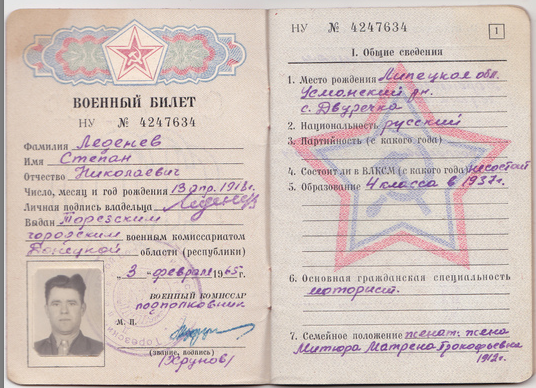 ВОЕННЫЙ БИЛЕТ
НУ № 4247634
Фамилия Леденев
Имя Степан
Отчество Николаевич
Число, месяц и год рождения 13 апр. 1918 г.
Личная подпись владельца Леденев
Выдан Торезским
городским военным комиссариатом
Донецкой области (республики)
„3" февраля 1965 г.
ВОЕННЫЙ КОМИССАР
подполковник
М. П.
(звание, подпись)
(Хрунов)
НУ № 4247634
1
I. Общие сведения
1. Место рождения Липецкая обл.
Усманский рн.
с. Двуречка
2. Национальность русский
3. Партийность (с какого года)
4. Состоит ли в ВЛКСМ (с какого года) не состоит
5. Образование 4 класса в 1937 г.
6. Основная гражданская специальность
моторист.
7. Семейное положение женат: жена
Митюра Матрена Прокофьевна
1912 г.